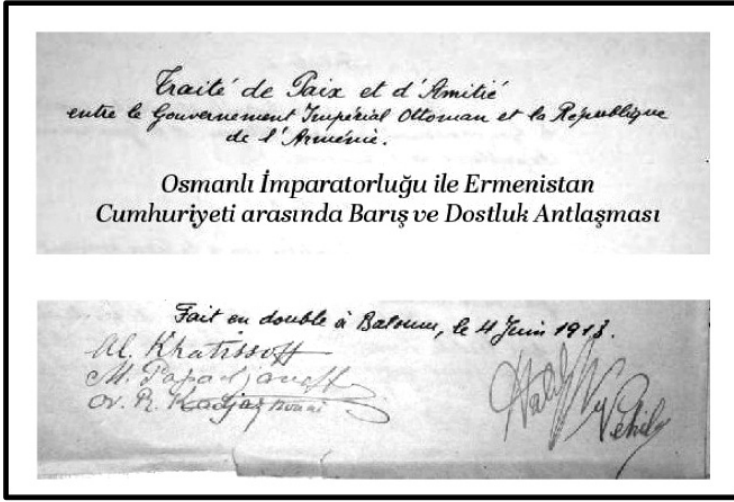 Traité de Paix et d'Amitié
entre le Gouvernement Impérial Ottoman et la République
de l'Arménie.
Osmanlı İmparatorluğu ile Ermenistan
Cumhuriyeti arasında Barış ve Dostluk Antlaşması
Fait en double à Batoum, le 4 Juin 1918.
Al. Khatissoff
M. Papadjanoff
Ov. R. Kadjaznouni
Halil Vehib